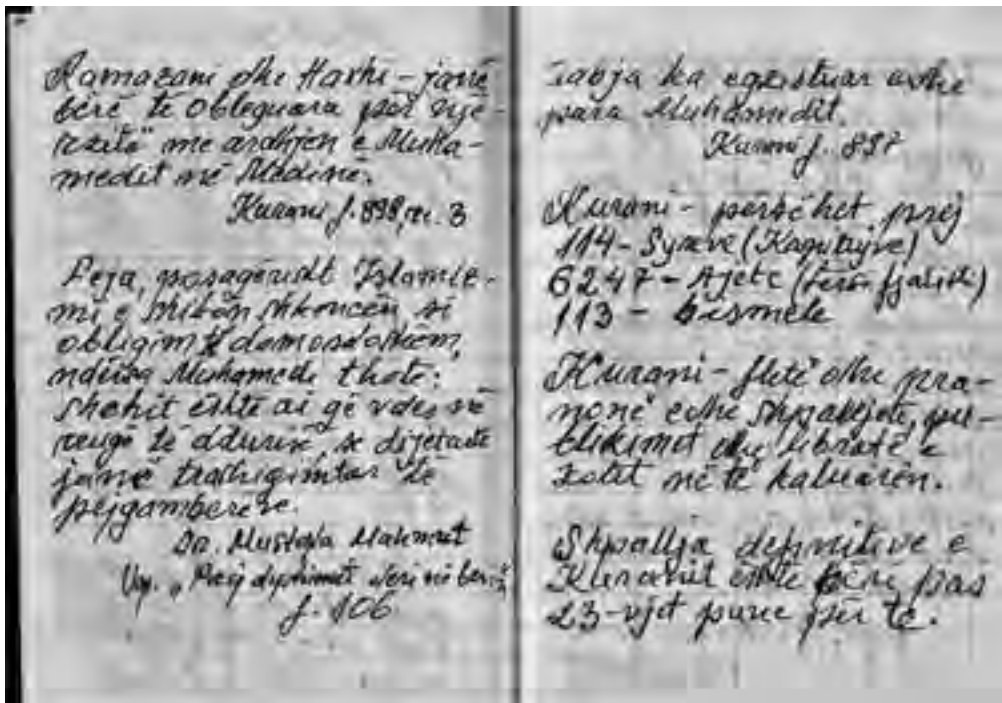 Ramazani dhe Haxhi - janë
bërë të obleguara për nje-
rzitë" me ardhjen e Muha-
medit në Medinë.
Kurani f. 898, nr. 3
Feja, posaqërisht Islamiz-
mi e shikon shkencën si
obligim të domosdoshëm,
ndërsa Muhamedi thotë:
shehit është ai që vdes në
rrugë të diturisë, se dijetarët
janë trashigimtar të
pejgamberëve.
Dr. Mustafa Mahmut
Vep. "Prej dyshimit deri në besim"
f. 106
ka egzistuar edhe
para Muhamedit.
Kurani f. 897
Kurani - përbëhet prej
114 - Syreve (Kapitujve)
6247 - Ajete (fjalish)
113 - bismele
Kurani - fletë dhe pra-
nonë edhe shpalljete, pu-
blikimet dhe librat e
Zotit në të kaluarën.
Shpallja definitive e
Kuranit është bërë pas
23-vjet pune për të.